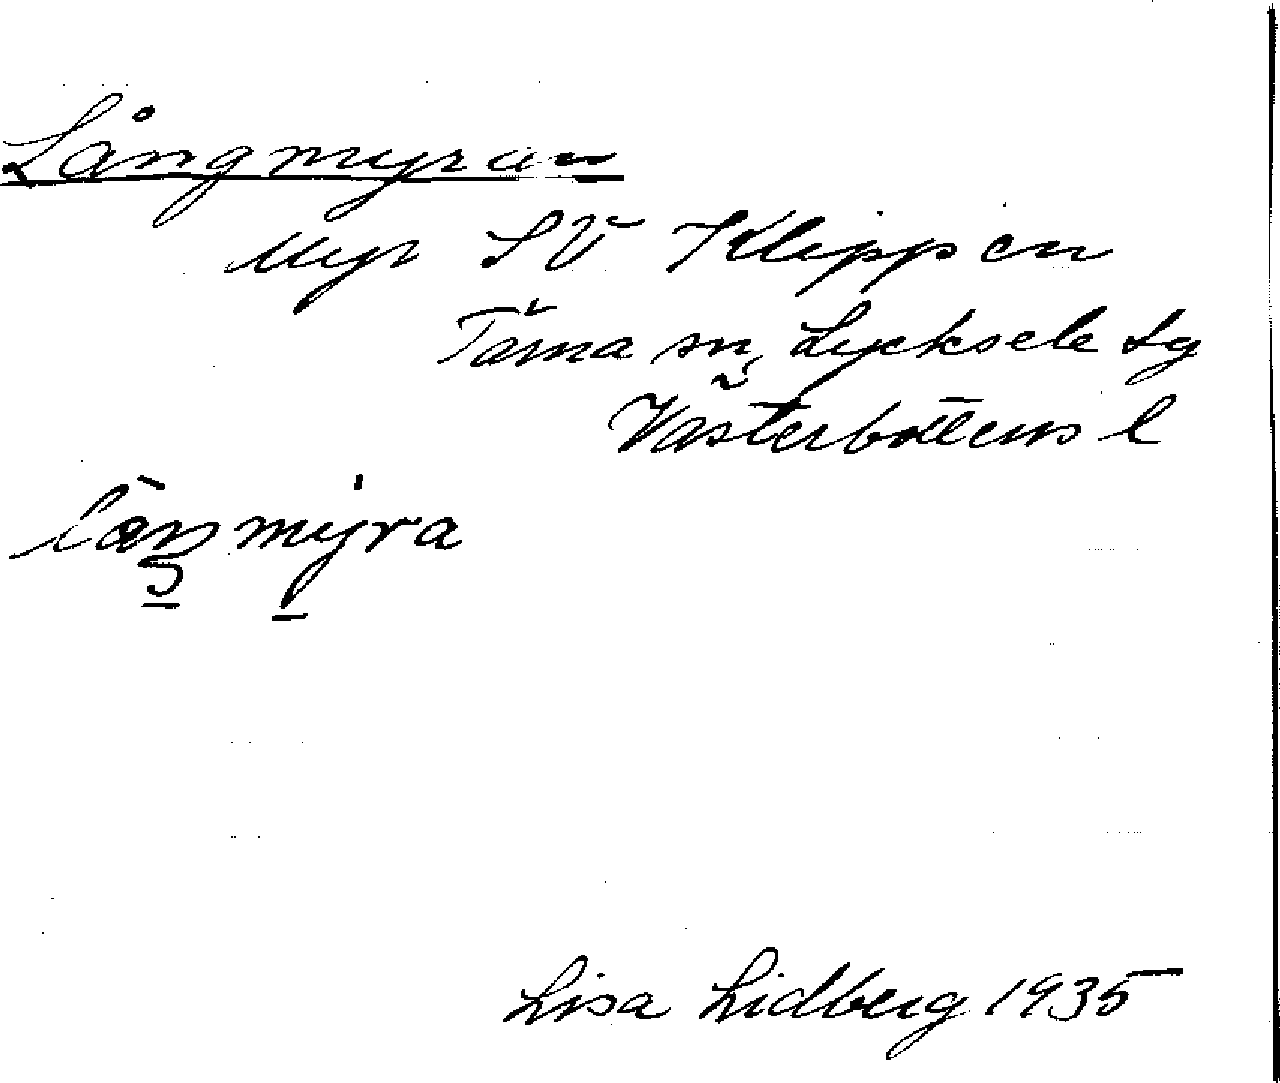 Långmyran
Myr SV Klippen
Tärna sn, Lycksele tg
Västerbottens l
Lisa Lidberg 1935